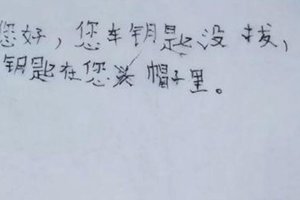 您好，您车钥匙没拔，
钥匙在您头帽子里。